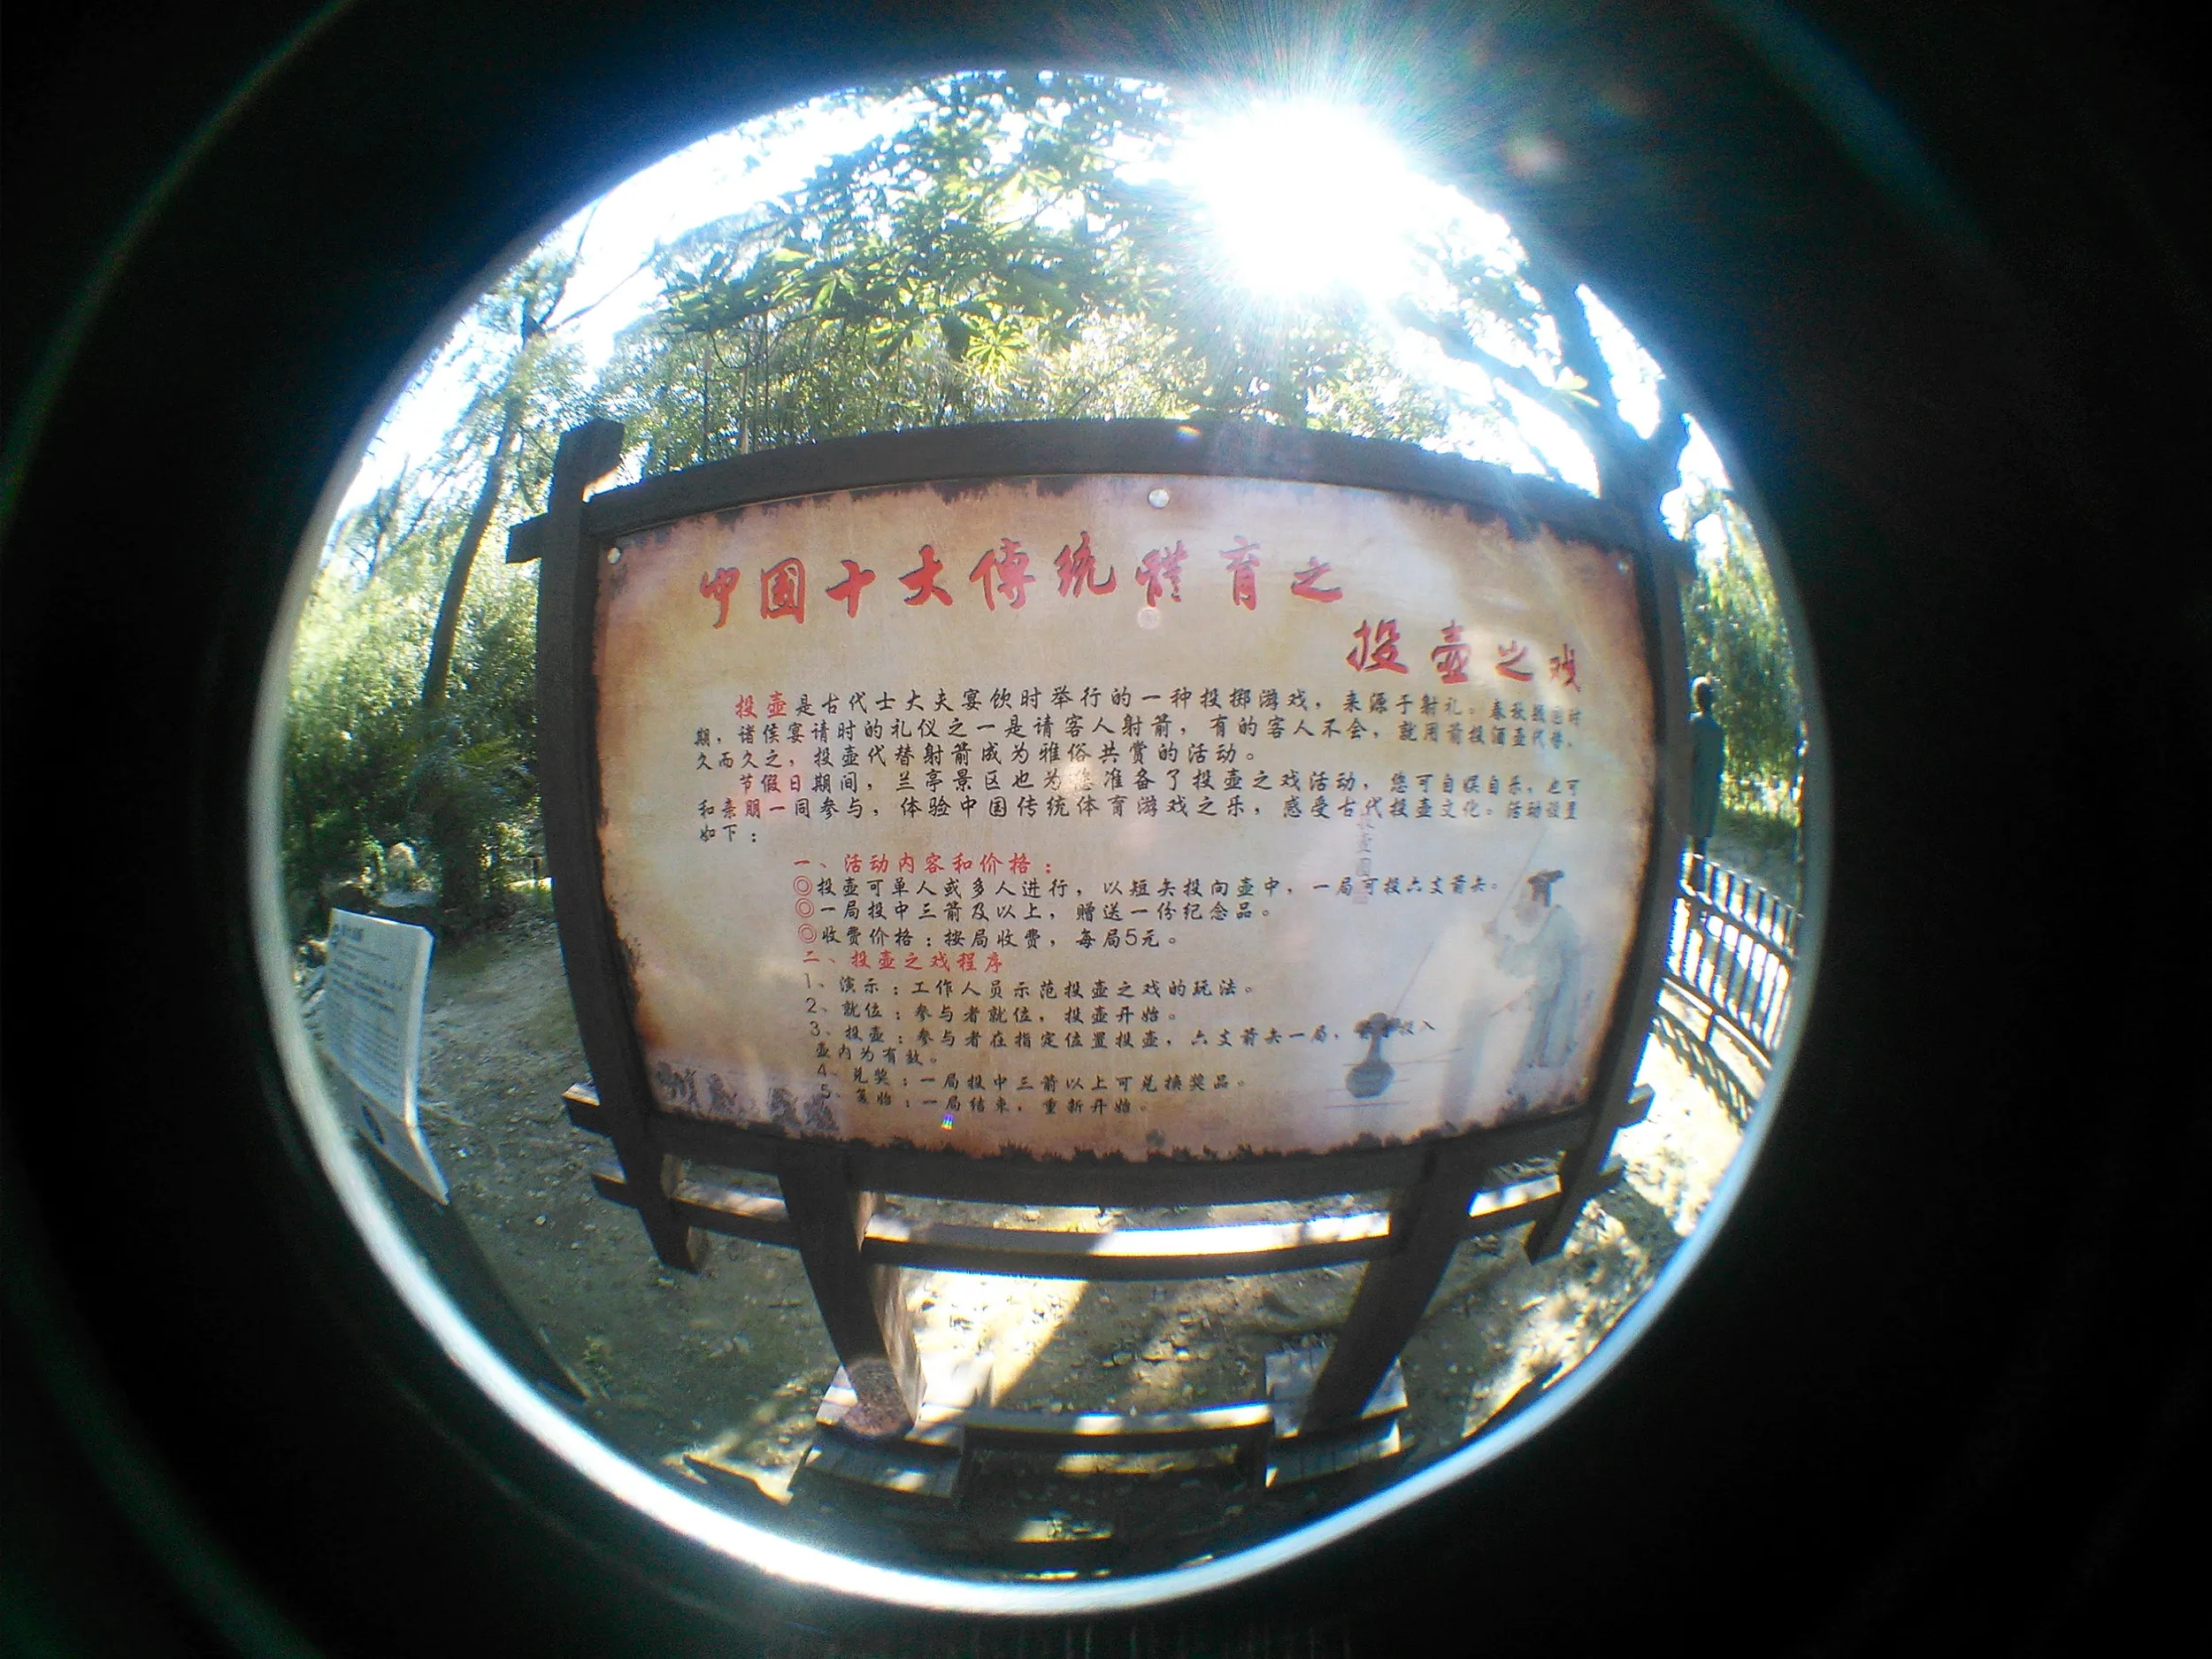 中国十大传统體育之
投壶之戏
投壶是古代士大夫宴饮时举行的一种投掷游戏，来源于射礼。春秋战国时
期，诸侯宴请时的礼仪之一是请客人射箭，有的客人不会，就用箭投酒壶代替。
久而久之，投壶代替射箭成为雅俗共赏的活动。
节假日期间，兰亭景区也为您准备了投壶之戏活动，您可自娱自乐，也可
和亲朋一同参与，体验中国传统体育游戏之乐，感受古代投壶文化。活动设置
如下：
一、活动内容和价格：
◎投壶可单人或多人进行，以短矢投向壶中，一局可投六支箭矢。
◎一局投中三箭及以上，赠送一份纪念品。
◎收费价格：按局收费，每局5元。
二、投壶之戏程序
1、演示：工作人员示范投壶之戏的玩法。
2、就位：参与者就位，投壶开始。
3、投壶：参与者在指定位置投壶，六支箭矢一局，投入
壶内为有效。
4、兑奖：一局投中三箭以上可兑换奖品。
5、复始：一局结束，重新开始。